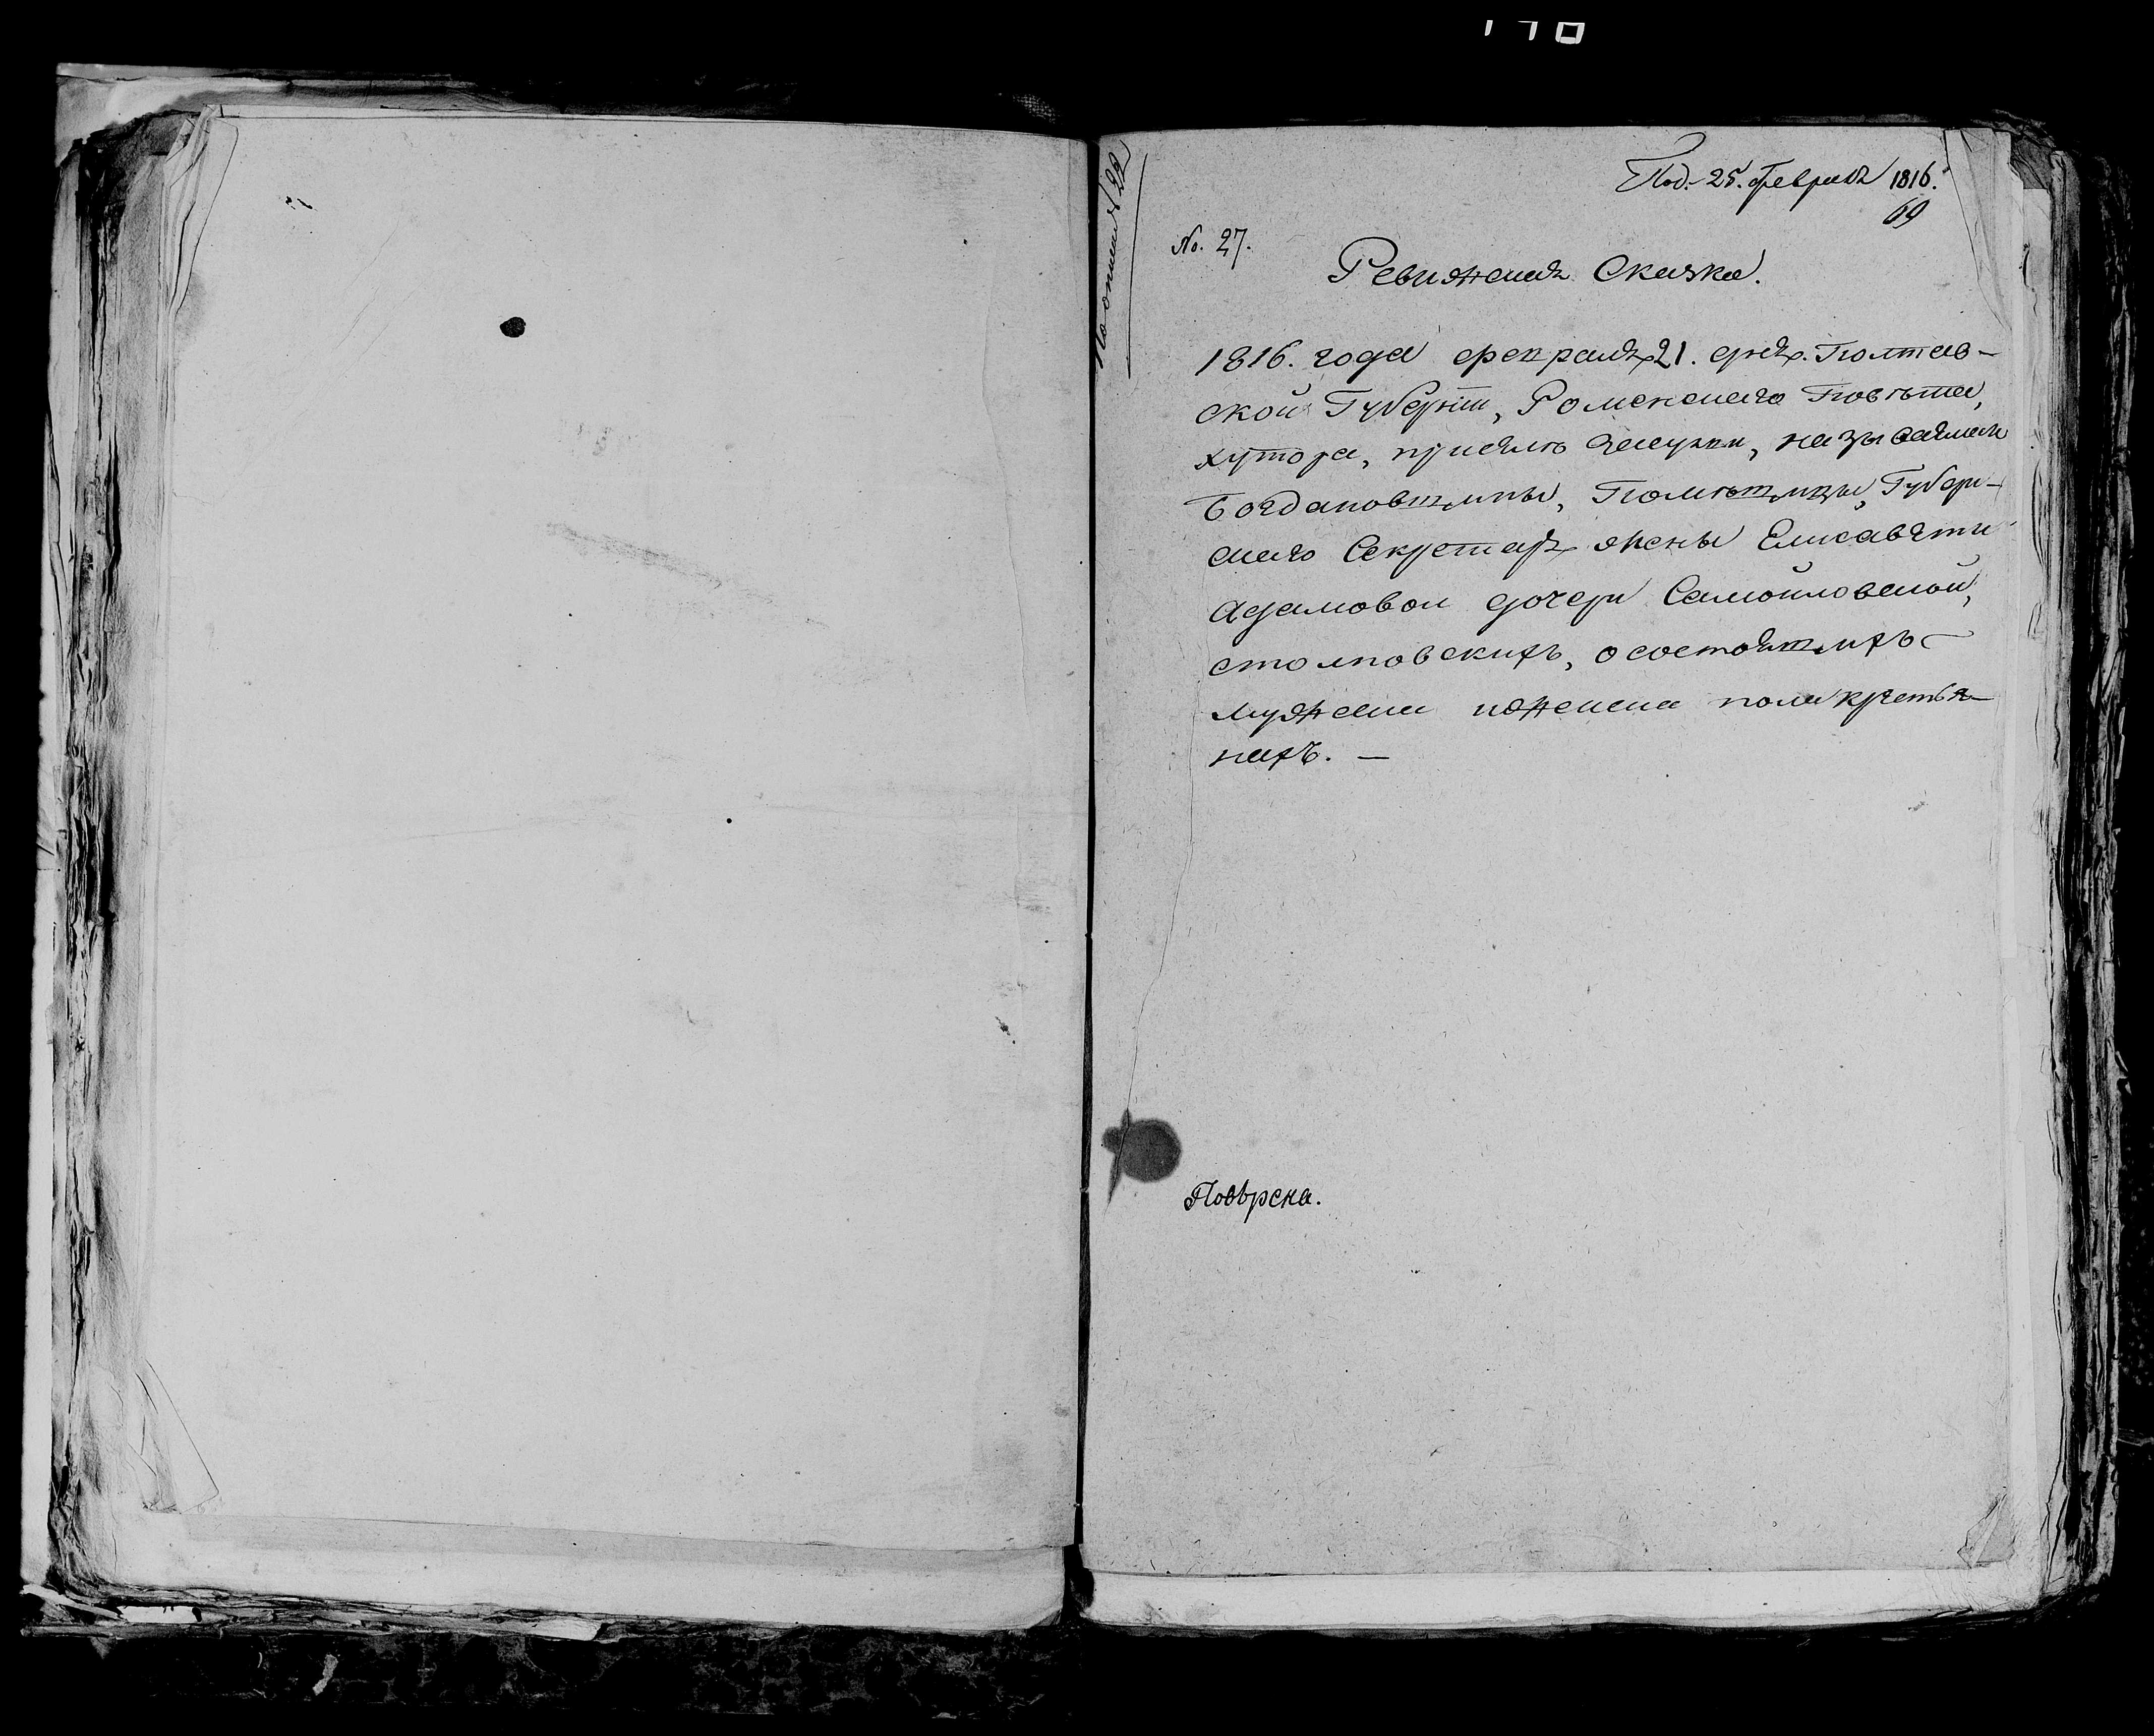 Под. 25. февраля 1816.
69
No. 27.
По описи № 22
Ревижская Сказка.
1816. года февраля 21. дня. Полтав-
ской Губерніи, Роменскаго Повѣта,
хутора, при селѣ называемом
Богдановщины, Помѣщицы, Губерн-
скаго Секретаря жены Елисаветы
Адамовой дочери Самойловской,
о состоящихъ
мужеска и женска пола крестья-
нахъ. —
Повѣрена.